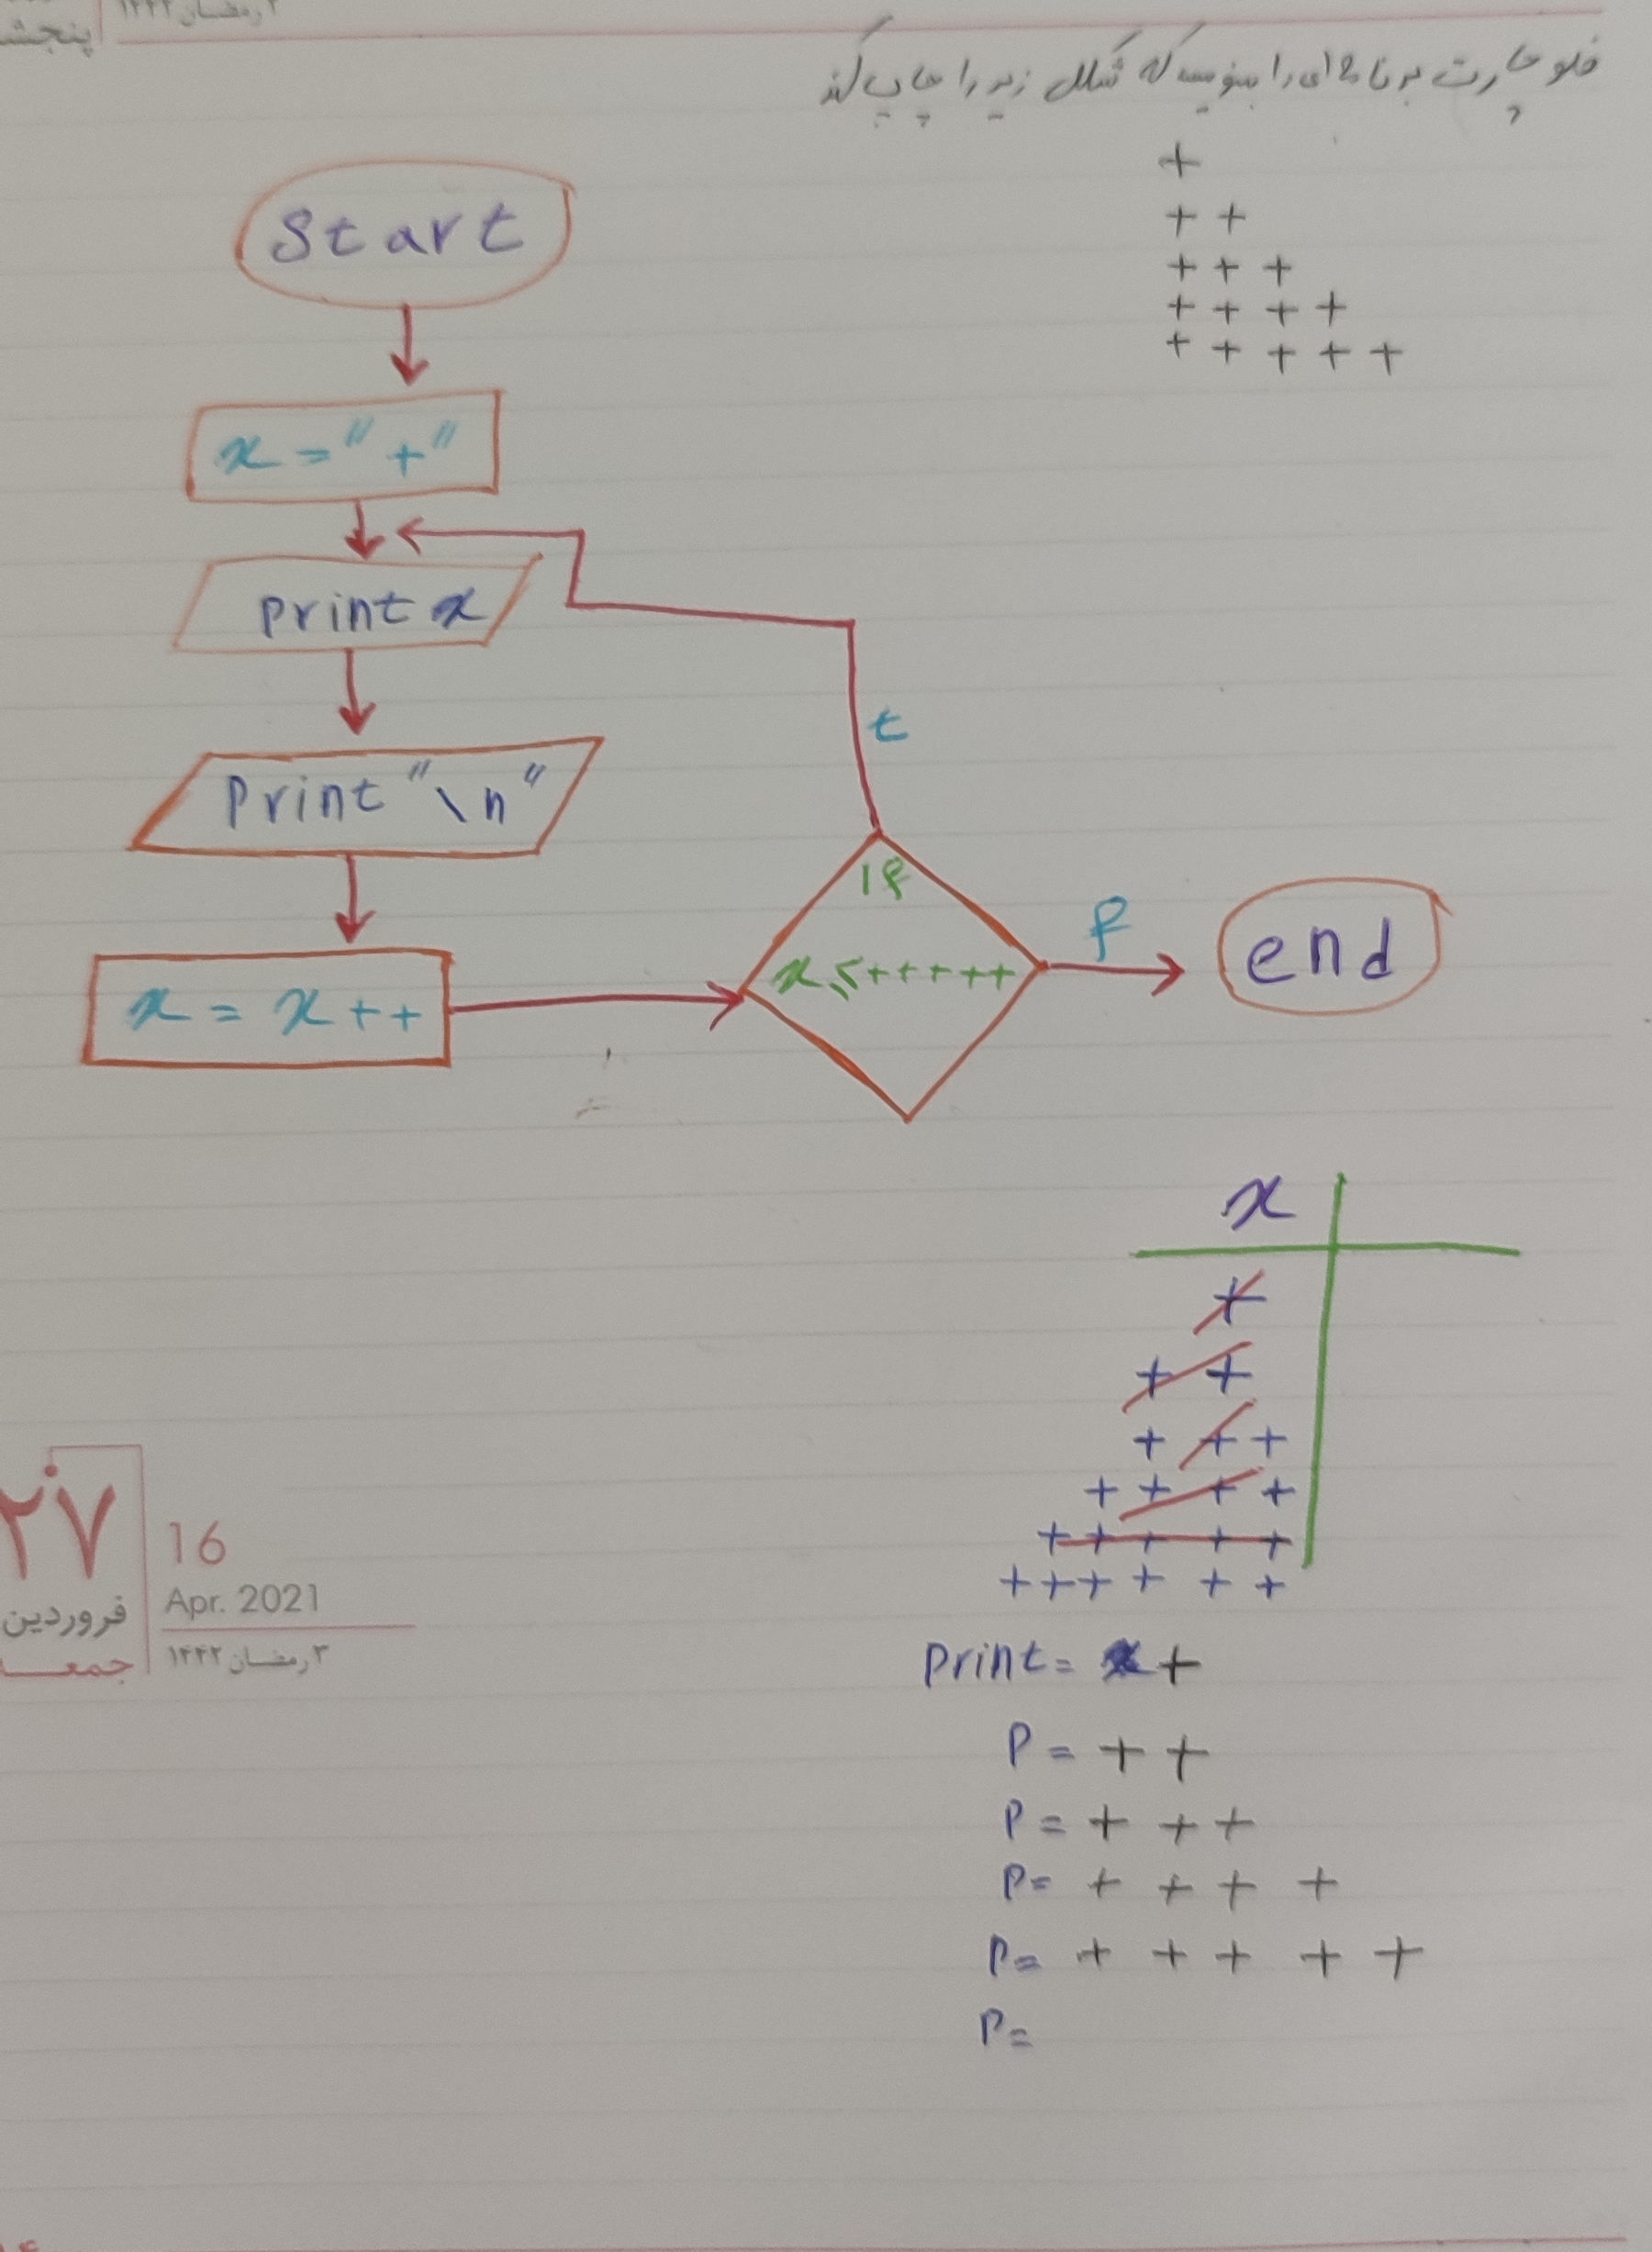 ۲ رمضان ۱۴۴۲
پنجش
فلوچارت برنامه‌ای را بنویسید که شکل زیر را چاپ کند
+
+ +
+ + +
+ + + +
+ + + + +
Start
x = "+"
print x
Print "\n"
x = x++
if
x ≤ +++++
t
f
end
x
+
+ +
+ + +
+ + + +
+ + + + +
+ + + + + +
print = +
P = + +
P = + + +
P = + + + +
P = + + + + +
P =
۲۷
فروردین
جمعه
16
Apr. 2021
۳ رمضان ۱۴۴۲